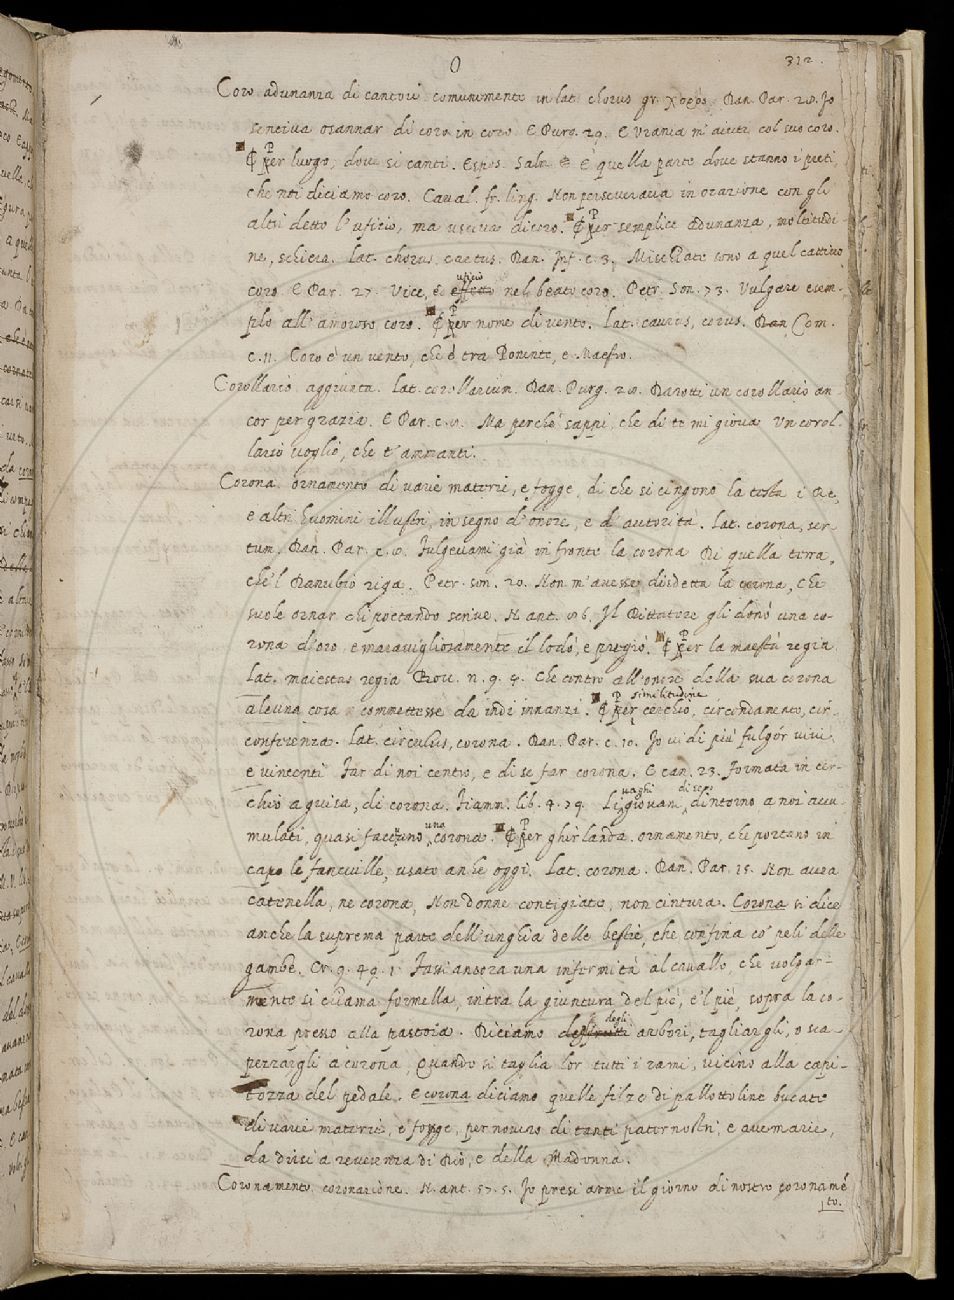 O
312.
Coro adunanza di cantori comunemente in lat. chorus gr. χορός. Dan. Par. 28. Io
sentiva osannar di coro in coro. E Purg. 29. E Urania m' aiuti col suo coro.
¶ Per luogo, dove si canti. Espos. Salm. E quella parte dove stanno i preti,
che noi diciamo coro. Caval. fr. ling. Non perseverava in orazione con gli
altri detto l' uficio, ma usciva di coro. ¶ Per semplice adunanza, moltitudi
ne, schiera. Lat. chorus, caetus. Dan. Inf. c. 3. Mischiate sono a quel cattivo
coro. E Par. 27. Vice, ed effetto uficio nel beato coro. Petr. Son. 73. Vulgare esem-
plo all' amoroso coro. ¶ Per nome di vento. Lat. caurus, corus. Dan Com.
c. 11. Coro è un vento, che è tra Ponente, e Maestro.
Corollario aggiunta. Lat. corollarium. Dan. Purg. 28. Darotti un corollario an-
cor per grazia. E Par. c. 8. Ma perchè sappi, che di te mi giova Un corol-
lario voglio, che t' ammanti.
Corona. ornamento di varie materie, e fogge, di che si cingono la testa i Re,
e altri huomini illustri, in segno d' onore, e d' autorità. Lat. corona, ser-
tum. Dan. Par. c. 8. Fulgevami già in fronte la corona Di quella terra,
che 'l Danubio riga. Petr. son. 20. Non m' avesse disdetta la corona, Che
suole ornar chi poetando scrive. N. ant. 86. Il Dittatore gli donò una co-
rona d' oro e maravigliosamente il lodò, e pregiò. ¶ Per la maestà regia
Lat. maiestas regia Bocc. n. 9. 9. Che contro all' onore della sua corona
alcuna cosa commettesse da indi innanzi. ¶ Per similitudine cerchio, circondamento, cir-
conferenza. Lat. circulus, corona. Dan. Par. c. 10. Io vidi più fulgor vivi
e vincenti Far di noi centro, e di se far corona. E can. 23. Formata in cer-
chio a guisa, di corona. Fiamm. lib. 4. 79. Li vaghi giovani di se, dintorno a noi accu-
mulati, quasi facevano una corona. ¶ Per ghirlanda. ornamento, che portano in
capo le fanciulle, usato anche oggi. Lat. corona. Dan. Par. 15. Non avea
catenella, ne corona, Non donne contigiate, non cintura. Corona si dice
anche la suprema parte dell' unghia delle bestie, che confina co' peli delle
gambe. Cr. 9. 49. 1. Fassi ancora una infermità al cavallo, che volgar-
mente si chiama formella, intra la giuntura del piè, e 'l piè, sopra la co-
rona presso alla pastoia. Diciamo degli arbori, tagliargli, o sca-
pezzargli a corona, Quando si taglia lor tutti i rami, vicino alla capi-
tozza del pedale. E corona diciamo quelle filze di pallottoline bucate
di varie materie, e fogge, per novero di tanti paternostri, e avemarie,
da dirsi a reverenza di Dio, e della Madonna.
Coronamento. coronazione. N. ant. 57. 5. Io presi arme il giorno di nostro coronamē
to.